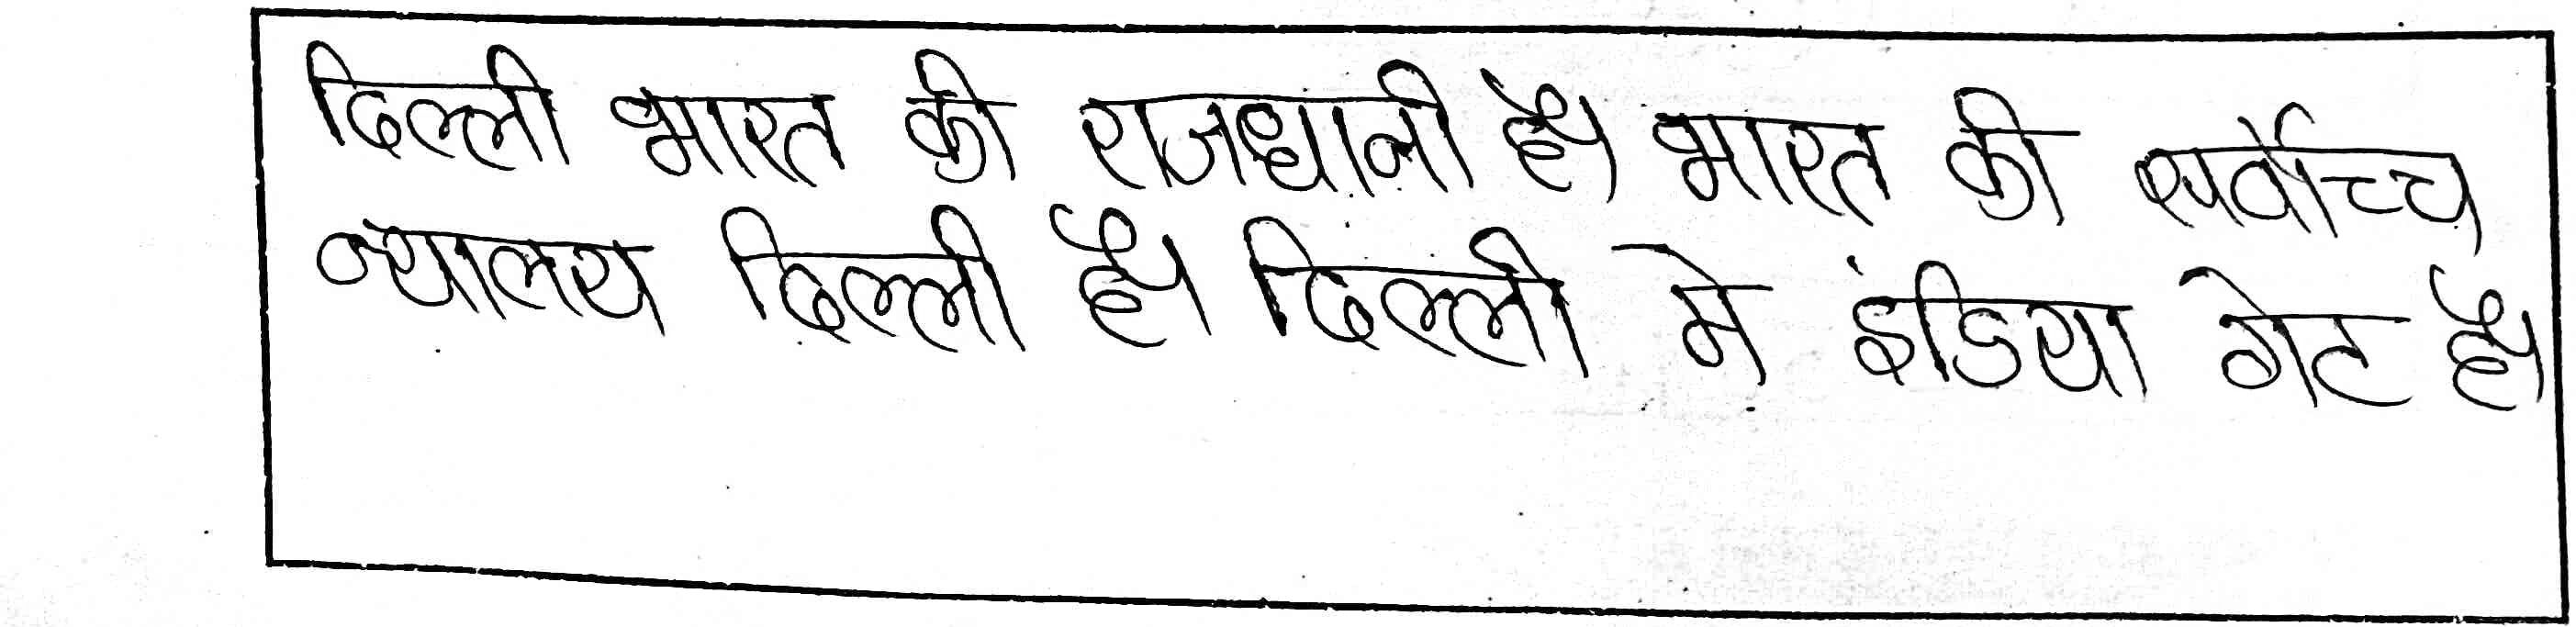 दिल्ली भारत की राजधानी है। भारत की सर्वोच्च
न्यालय दिल्ली है। दिल्ली मे इंडिया गेट है।